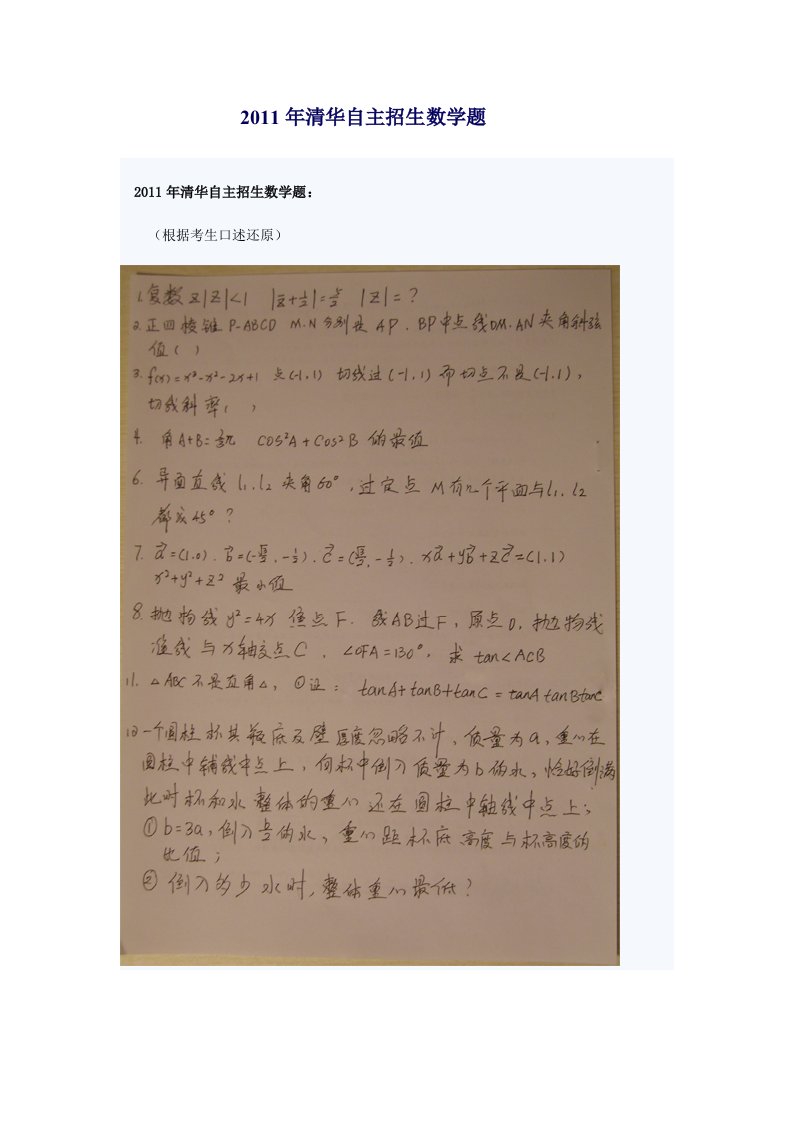 2011 年清华自主招生数学题
2011 年清华自主招生数学题：
（根据考生口述还原）
1.复数 z |z|<1 |z̄+1/z|=5/2 |z|=?
2.正四棱锥 P-ABCD M.N分别是 AP、BP中点 线DM.AN 夹角
值( )
3. f(x)=x³-x²-2x+1 点(-1,1) 切线过(-1,1)而切点不是(-1,1),
切线斜率( )
4. 角A+B= cos²A+cos²B 的最值
6. 异面直线 l₁.l₂ 夹角60°,过定点 M有几个平面与l₁、l₂
都成45°?
7. a⃗=(1,0). b⃗=(-√3/2,-1/2). c⃗=(√3/2,-1/2). xa⃗+yb⃗+zc⃗=(1,1)
x²+y²+z² 最小值
8.抛物线 y²=4x 焦点F. 线AB过F,原点O,抛物线
准线与x轴交点C.∠OFA=130°,求 tan∠ACB
11. △ABC不是直角△,①证: tanA+tanB+tanC=tanA tanBtanC
一个圆柱杯其瓶底及壁厚度忽略不计,质量为a,重心在
圆柱中轴线中点上,向杯中倒入质量为b的水,恰好倒满
此时杯和水整体的重心还在圆柱中轴线中点上;
①b=3a,倒入 的水,重心距杯底高度与杯高度的
比值;
②倒入多少水时,整体重心最低?